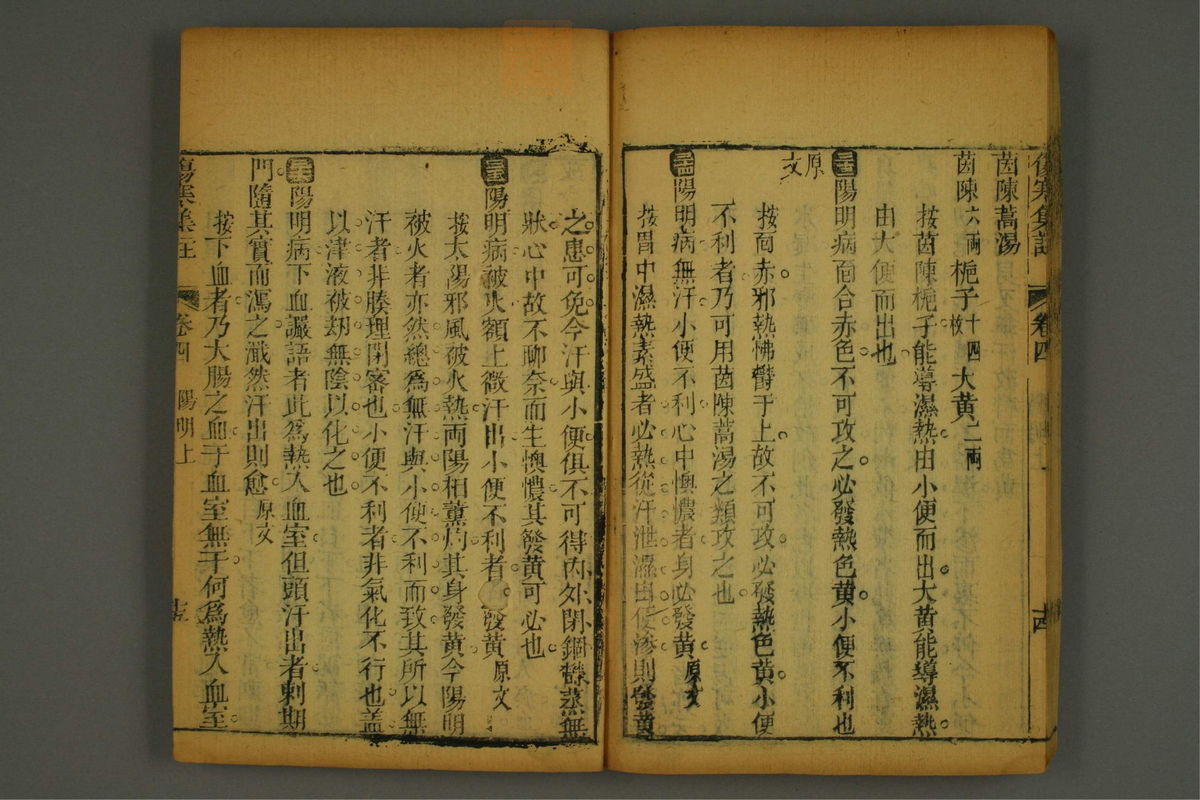 傷寒集註 卷四 十四
茵陳蒿湯
茵陳六兩 梔子十四枚 大黃二兩
按茵陳梔子能導濕熱由小便而出大黃能導濕熱
由大便而出也
陽明病面合赤色不可攻之必發熱色黃小便不利也
原文
按面赤邪熱怫鬱于上故不可攻必發熱色黃小便
不利者乃可用茵陳蒿湯之類攻之也
陽明病無汗小便不利心中懊憹者身必發黃原文
按胃中濕熱素盛者必熱從汗泄濕由便滲則發黃
之患可免今汗與小便俱不可得內外閉錮鬱蒸無
狀心中故不聊奈而生懊憹其發黃可必也
陽明病被火額上微汗出小便不利者發黃原文
按太陽邪風被火熱兩陽相薰灼其身發黃今陽明
被火者亦然總為無汗與小便不利而致其所以無
汗者非腠理閉密也小便不利者非氣化不行也蓋
以津液被刼無陰以化之也
陽明病下血讝語者此為熱入血室但頭汗出者刺期
門隨其實而瀉之濈然汗出則愈原文
按下血者乃大腸之血于血室無干何為熱入血室
傷寒集註 卷四 陽明上